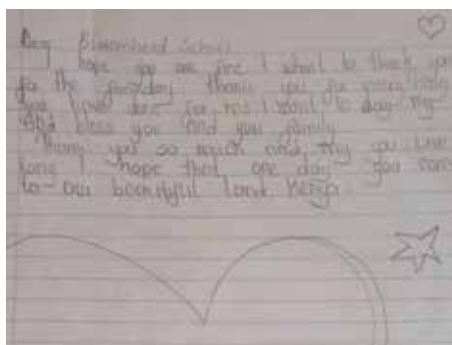 School
hope you are fine I want to thank you
for the thank you for everything
you have done for I want to
God bless you and you family
Thank you so much and may you Live
Long I hope that one day you come
to our beautiful land Kenya.